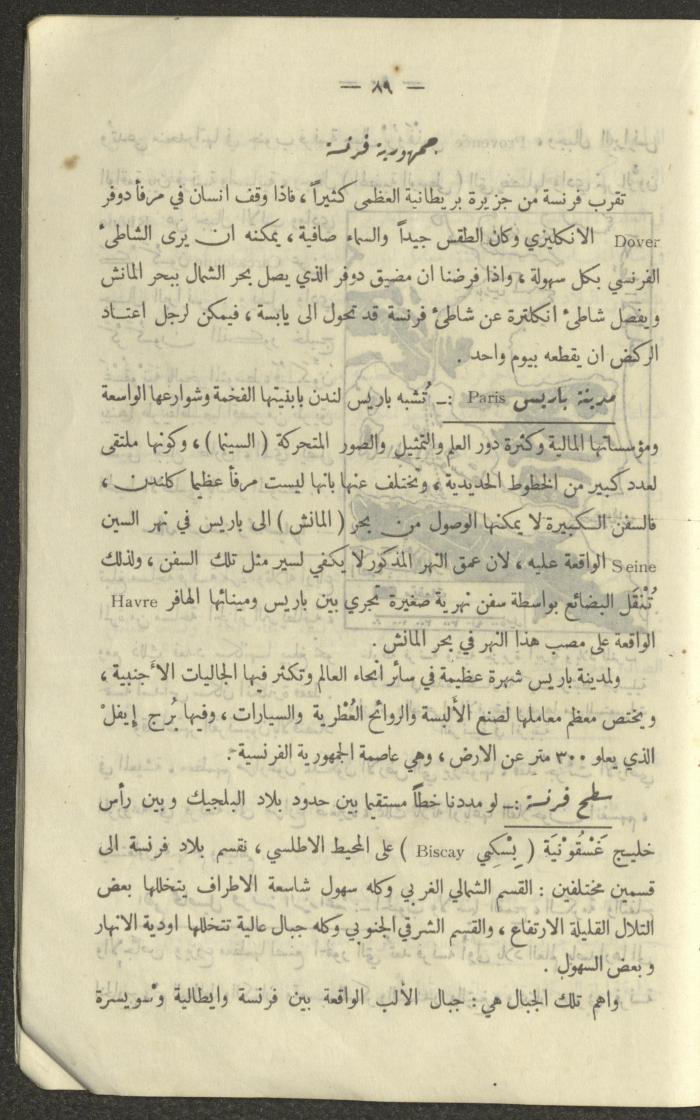 — ٨٩ —
جمهورية فرنسة
تقرب فرنسة من جزيرة بريطانية العظمى كثيراً ، فاذا وقف انسان في مرفأ دوفر
Dover الانكليزي وكان الطقس جيداً والسماء صافية ، يمكنه ان يرى الشاطئ
الفرنسي بكل سهولة ، واذا فرضنا ان مضيق دوفر الذي يصل بحر الشمال ببحر المانش
ويفصل شاطئ انكلترة عن شاطئ فرنسة قد تحول الى يابسة ، فيمكن لرجل اعتاد
الركض ان يقطعه بيوم واحد .
مدينة باريس Paris :ـ تُشبه باريس لندن بابنيتها الفخمة وشوارعها الواسعة
ومؤسساتها المالية وكثرة دور العلم والتمثيل والصور المتحركة ( السينما ) ، وكونها ملتقى
لعدد كبير من الخطوط الحديدية ، وتختلف عنها بانها ليست مرفأ عظيما كلندن ،
فالسفن الكبيرة لا يمكنها الوصول من بحر ( المانش ) الى باريس في نهر السين
Seine الواقعة عليه ، لان عمق النهر المذكور لا يكفي لسير مثل تلك السفن ، ولذلك
تُنْقَل البضائع بواسطة سفن نهرية صغيرة تجري بين باريس ومينائها الهافر Havre
الواقعة على مصب هذا النهر في بحر المانش .
ولمدينة باريس شهرة عظيمة في سائر انحاء العالم وتكثر فيها الجاليات الأجنبية ،
ويختص معظم معاملها لصنع الألبسة والروائح العُطْرية والسيارات ، وفيها بُرج إيفلْ
الذي يعلو ٣٠٠ متر عن الارض ، وهي عاصمة الجمهورية الفرنسية .
سطح فرنسة :ـ لو مددنا خطاً مستقيما بين حدود بلاد البلجيك وبين رأس
خليج غَسْقُوْنْيَة ( بِسْكِي Biscay ) على المحيط الاطلسي ، نقسم بلاد فرنسة الى
قسمين مختلفين : القسم الشمالي الغربي وكله سهول شاسعة الاطراف يتخللها بعض
التلال القليلة الارتفاع ، والقسم الشرقي الجنوبي وكله جبال عالية تتخللها اودية الانهار
وبعض السهول .
واهم تلك الجبال هي : جبال الألب الواقعة بين فرنسة وايطالية وسويسرة